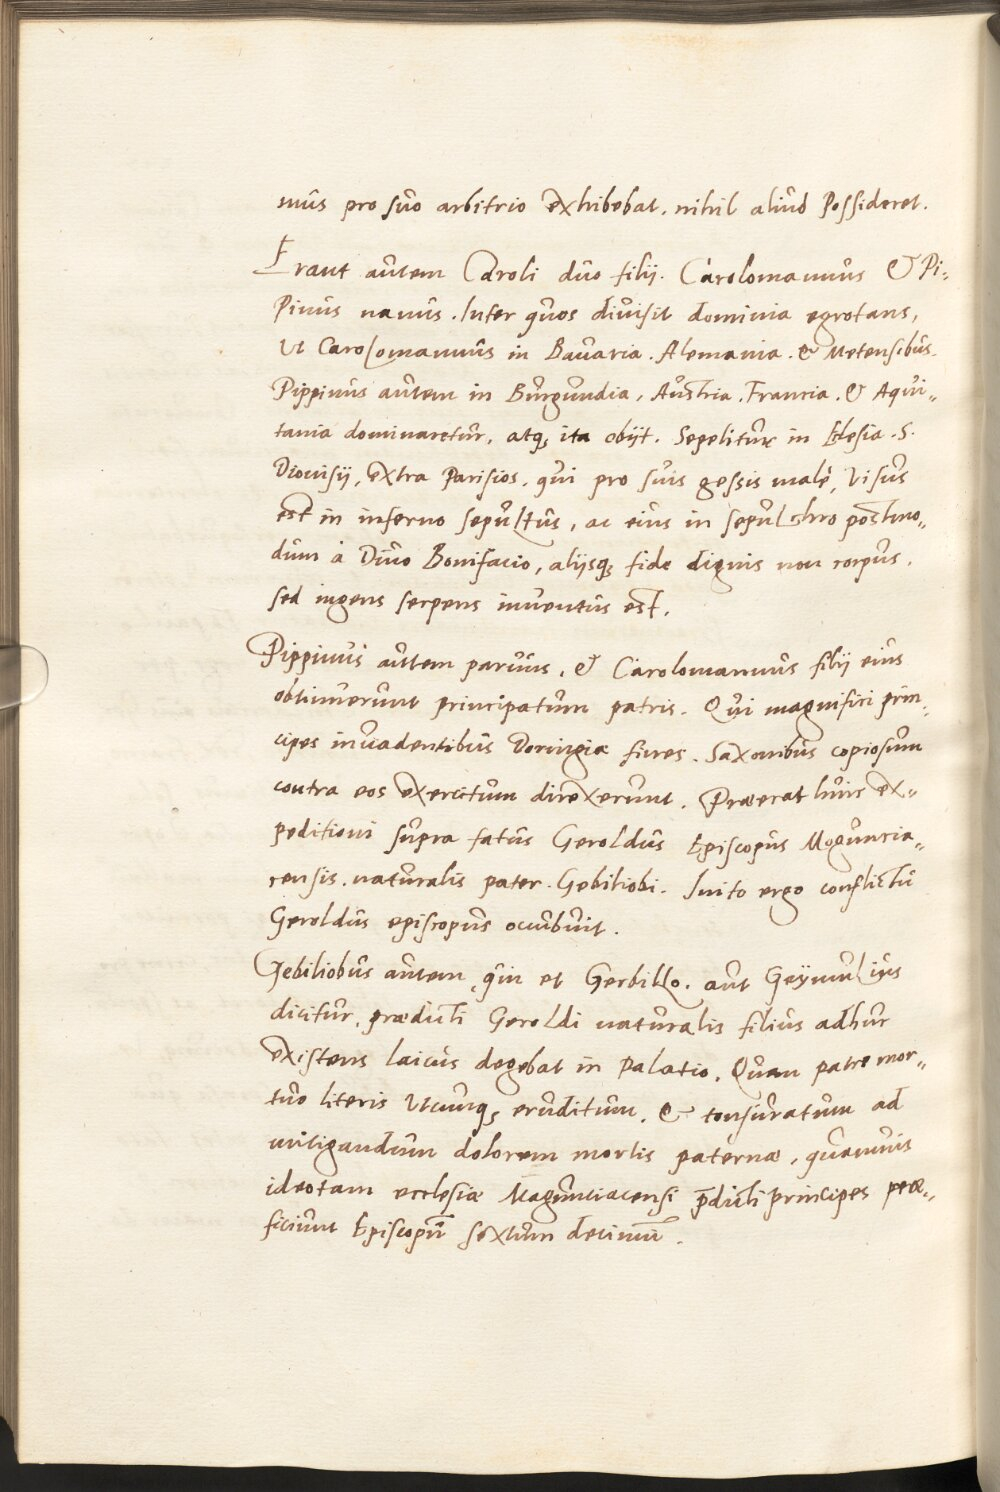 mus pro suo arbitrio exhibebat. nihil aliud possideret.
Erant autem Caroli duo filij. Carolomannus & Pi-
Pinus nanus. Inter quos diuisit dominia egrotans,
Ut Carolomannus in Bauaria. Alemania. & Metensibus.
Pippinus autem in Burgundia, Austria. Francia. & Aqui-
tania dominaretur, atq; ita obijt. Sepelitur in Eclesia. S.
Dionisij, extra Parisios. qui pro suis gessis malè, Visus
est in inferno sepultus, ac eius in sepulchro postmo-
dum à Diuo Bonifacio, alijsq; fide dignis non corpus.
sed ingens serpens inuentus est.
Pippinus autem paruus, & Carolomannus filij eius
obtinuerunt principatum patris. Qui magnifici prin-
cipes inuadentibus Doringiæ fines. Saxonibus copiosum
contra eos exercitum direxerunt. Præerat huic ex-
peditioni supra fatus Geroldus Episcopus Moguncia-
censis. naturalis pater. Gebiliobi. Inito ergo conflictu
Geroldus episcopus occubuit.
Gebiliobus autem, qui et Gerbillo. aut Geymulius
dicitur, prædicti Geroldi naturalis filius adhuc
existens laicus degebat in palatio. Quem patre mor-
tuo literis Utcunq; eruditum. & tonsuratum ad
mitigandum dolorem mortis paternæ, quamuis
ideotam ecclesiæ Magunciacensi p̄dicti principes præ-
ficiunt Episcopū sextum decimū.